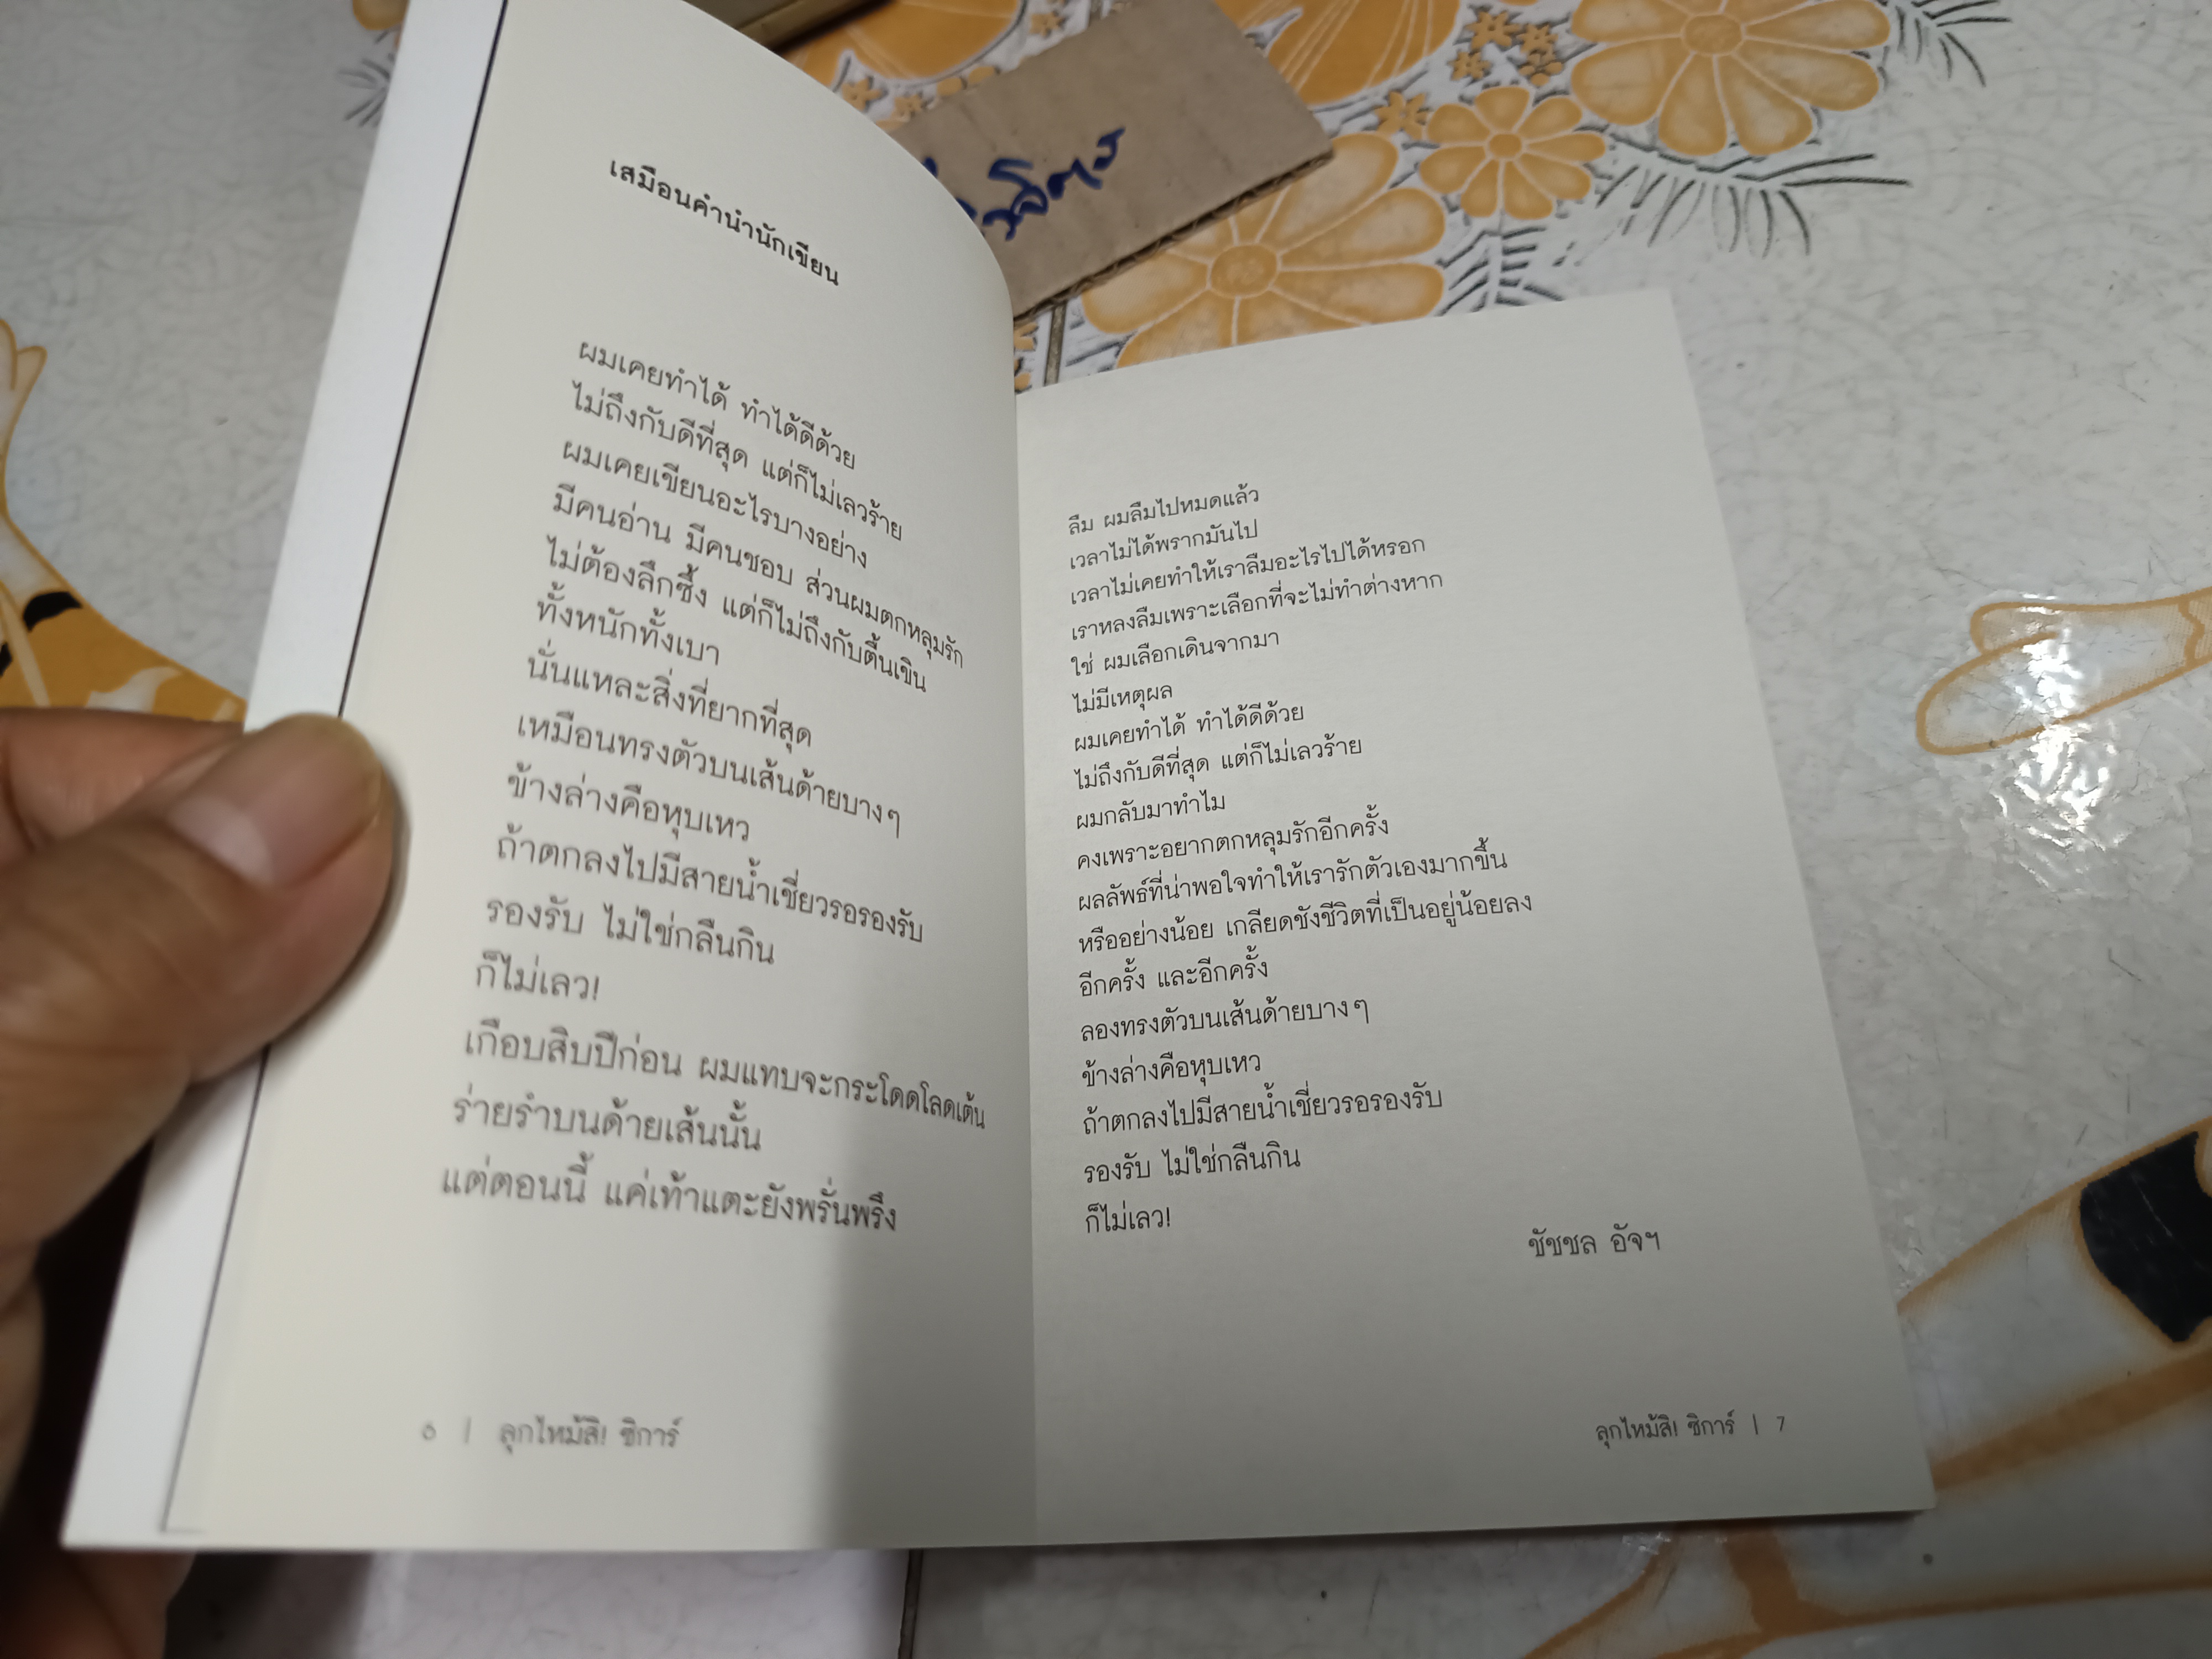 เสมือนคำนำนักเขียน
ผมเคยทำได้ ทำได้ดีด้วย
ไม่ถึงกับดีที่สุด แต่ก็ไม่เลวร้าย
ผมเคยเขียนอะไรบางอย่าง
มีคนอ่าน มีคนชอบ ส่วนผมตกหลุมรัก
ไม่ต้องลึกซึ้ง แต่ก็ไม่ถึงกับตื้นเขิน
ทั้งหนักทั้งเบา
นั่นแหละสิ่งที่ยากที่สุด
เหมือนทรงตัวบนเส้นด้ายบางๆ
ข้างล่างคือหุบเหว
ถ้าตกลงไปมีสายน้ำเชี่ยวรอรองรับ
รองรับ ไม่ใช่กลืนกิน
ก็ไม่เลว!
เกือบสิบปีก่อน ผมแทบจะกระโดดโลดเต้น
ร่ายรำบนด้ายเส้นนั้น
แต่ตอนนี้ แค่เท้าแตะยังพรั่นพรึง
6 | ลุกไหม้สิ! ซิการ์
ลืม ผมลืมไปหมดแล้ว
เวลาไม่ได้พรากมันไป
เวลาไม่เคยทำให้เราลืมอะไรไปได้หรอก
เราหลงลืมเพราะเลือกที่จะไม่ทำต่างหาก
ใช่ ผมเลือกเดินจากมา
ไม่มีเหตุผล
ผมเคยทำได้ ทำได้ดีด้วย
ไม่ถึงกับดีที่สุด แต่ก็ไม่เลวร้าย
ผมกลับมาทำไม
คงเพราะอยากตกหลุมรักอีกครั้ง
ผลลัพธ์ที่น่าพอใจทำให้เรารักตัวเองมากขึ้น
หรืออย่างน้อย เกลียดชังชีวิตที่เป็นอยู่น้อยลง
อีกครั้ง และอีกครั้ง
ลองทรงตัวบนเส้นด้ายบางๆ
ข้างล่างคือหุบเหว
ถ้าตกลงไปมีสายน้ำเชี่ยวรอรองรับ
รองรับ ไม่ใช่กลืนกิน
ก็ไม่เลว!
ชัชชล อัจฯ
ลุกไหม้สิ! ซิการ์ | 7